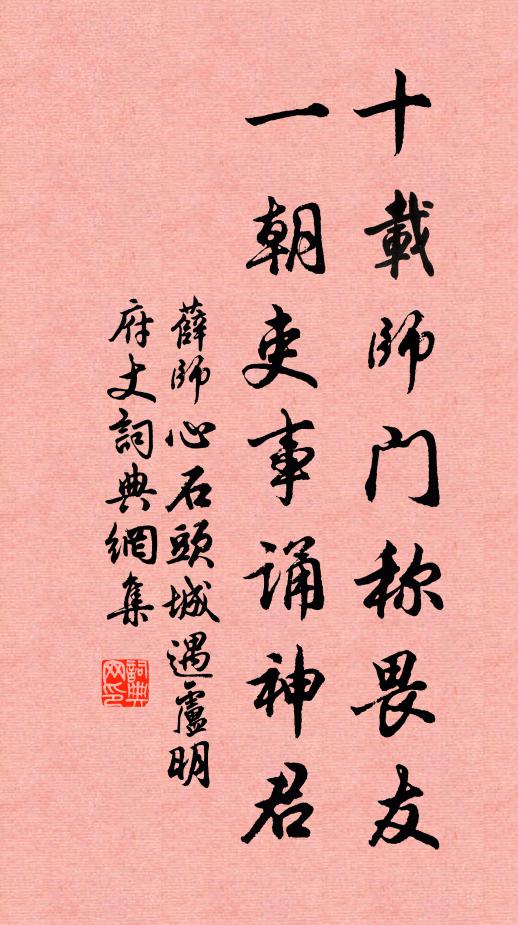 十載師门称畏友
一朝吏事诵神君
薛師心石頭城遇盧明
府丈詞典網集
詞典网印